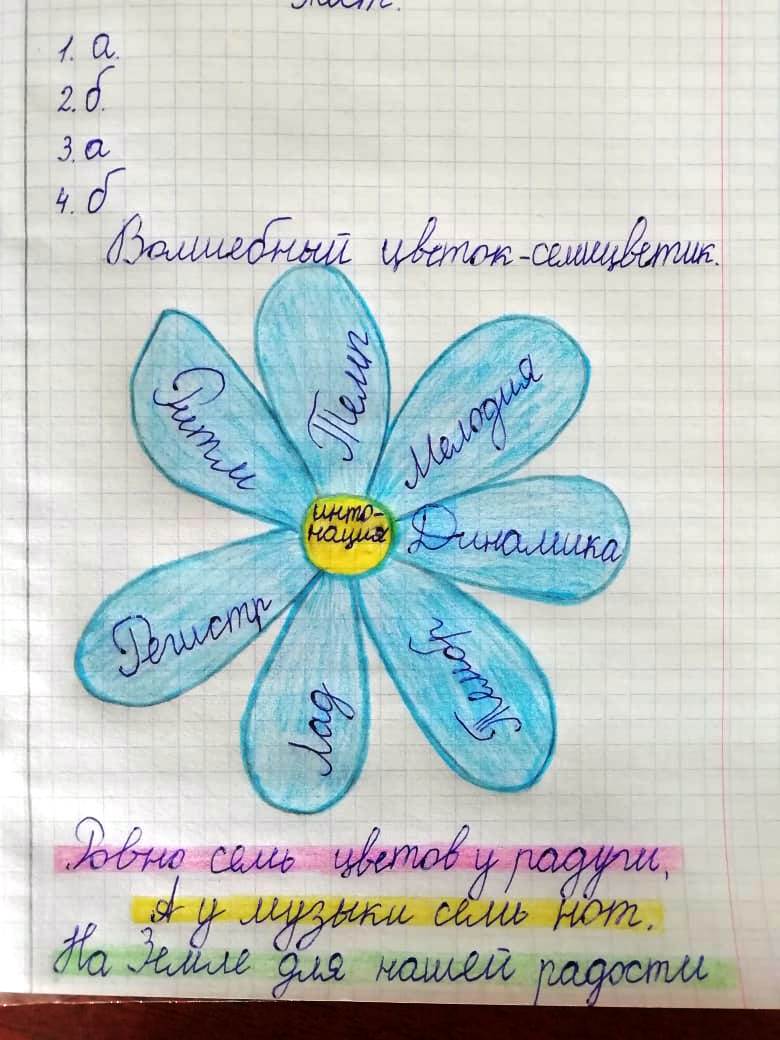 Тест.
1. а.
2. б.
3. а
4. б
Волшебный цветок-семицветик.
Ритм
Темп
Мелодия
инто-
нация
Динамика
Регистр
Лад
Тембр
Ровно семь цветов у радуги,
А у музыки семь нот.
На Земле для нашей радости